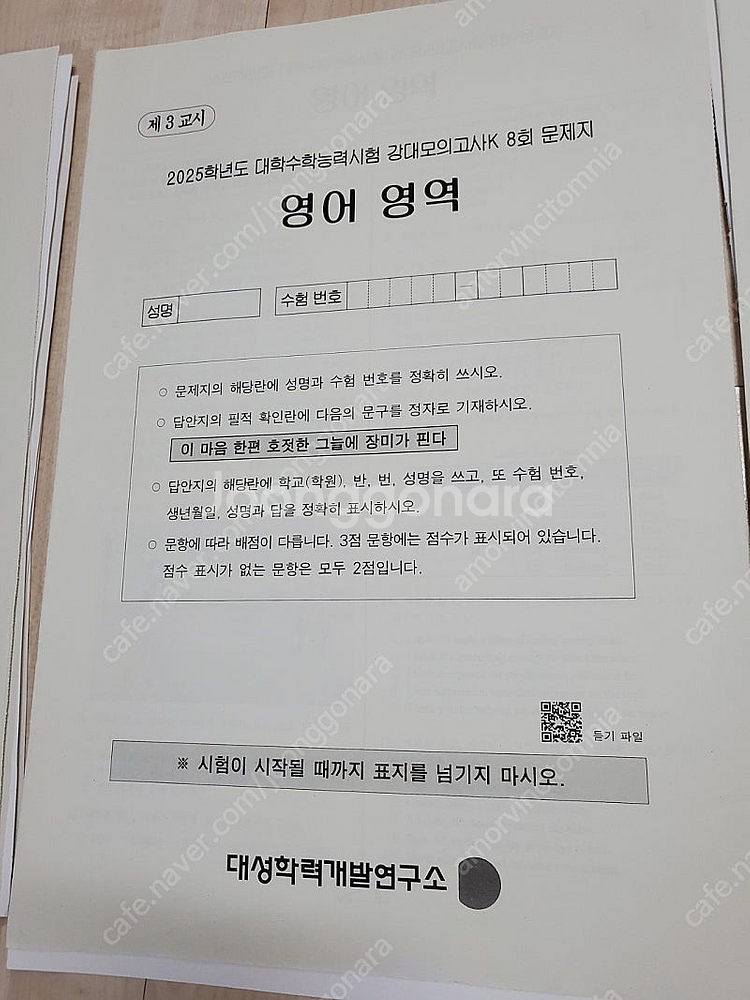 제 3 교시
2025학년도 대학수학능력시험 강대모의고사K 8회 문제지
영어 영역
성명
수험 번호
–
○ 문제지의 해당란에 성명과 수험 번호를 정확히 쓰시오.
○ 답안지의 필적 확인란에 다음의 문구를 정자로 기재하시오.
이 마음 한편 호젓한 그늘에 장미가 핀다
○ 답안지의 해당란에 학교(학원), 반, 번, 성명을 쓰고, 또 수험 번호,
생년월일, 성명과 답을 정확히 표시하시오.
○ 문항에 따라 배점이 다릅니다. 3점 문항에는 점수가 표시되어 있습니다.
점수 표시가 없는 문항은 모두 2점입니다.
듣기 파일
※ 시험이 시작될 때까지 표지를 넘기지 마시오.
대성학력개발연구소
Joonggonara
cafe.naver.com/joonggonara
amorvincitomnia